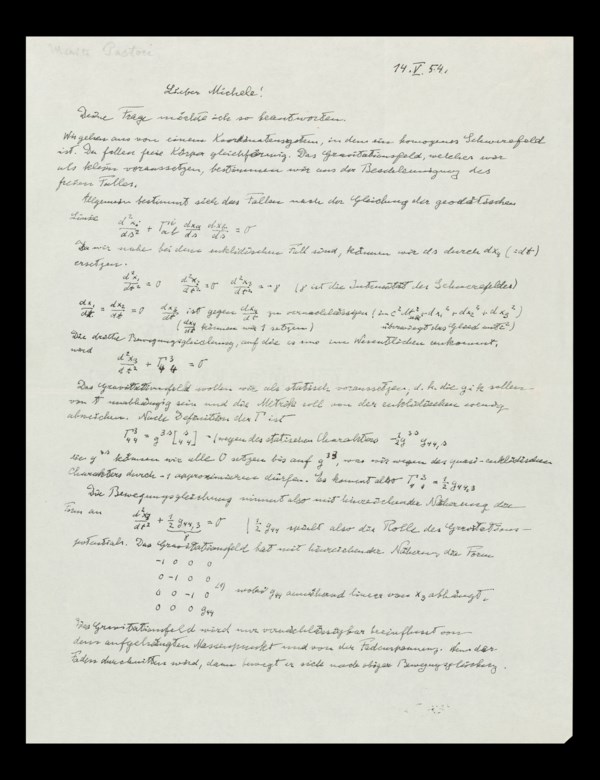 14. V. 54.
Lieber Michele!
Deine Frage möchte ich so beantworten.
Wir gehen aus von einem Koordinatensystem, in dem ein homogenes Schwerefeld
ist. In fallen freie Körper gleichförmig. Das Gravitationsfeld, welches wir
als klein voraussetzen, bestimmen wir aus der Beschleunigung des
freien Falles.
Allgemein bestimmt sich das Fallen nach der Gleichung der geodätischen
Linie d²xi/ds² + Γ^i_ab dxa/ds dxb/ds = 0
Da wir nahe bei dem euklidischen Fall sind, können wir ds durch dx4 (=dt)
ersetzen.
d²x1/dt² = 0 d²x2/dt² = 0 d²x3/dt² = -g (g ist die Intensität des Schwerefeldes)
dx1/dt = dx2/dt = 0 dx3/dt ist gegen dx4/dt zu vernachlässigen
(dx4/dt können wir 1 setzen) überwiegt das Glied mit c²)
Die dritte Bewegungsgleichung, auf die es uns im Wesentlichen ankommt,
wird d²x3/dt² + Γ^3_44 = 0
Das Gravitationsfeld wollen wir als statisch voraussetzen, d. h. die gik sollen
von t unabhängig sein und die Metrik soll von der euklidischen wenig
abweichen. Nach Definition der Γ ist
Γ^3_44 = g^3σ [4 4 σ] = (wegen des statischen Charakters -½ g^3σ g44,σ
die g^3σ können wir alle 0 setzen bis auf g^33, was wir wegen des quasi-euklidischen
Charakters durch -1 approximieren dürfen. Es kommt also Γ^3_44 = ½ g44,3
Die Bewegungsgleichung nimmt also mit hinreichender Näherung die
Form an d²x3/dt² + ½ g44,3 = 0 | ½ g44 spielt also die Rolle des Gravitations-
potentials. Das Gravitationsfeld hat mit hinreichender Näherung die Form
-1 0 0 0
0 -1 0 0
0 0 -1 0 wobei g44 annähernd linear von x3 abhängt.
0 0 0 g44
Das Gravitationsfeld wird nur vernachlässigbar beeinflusst von
dem aufgehängten Massenpunkt und von der Fadenspannung. Wenn der
Faden durchschnitten wird, dann bewegt er sich nach obiger Bewegungsgleichung.